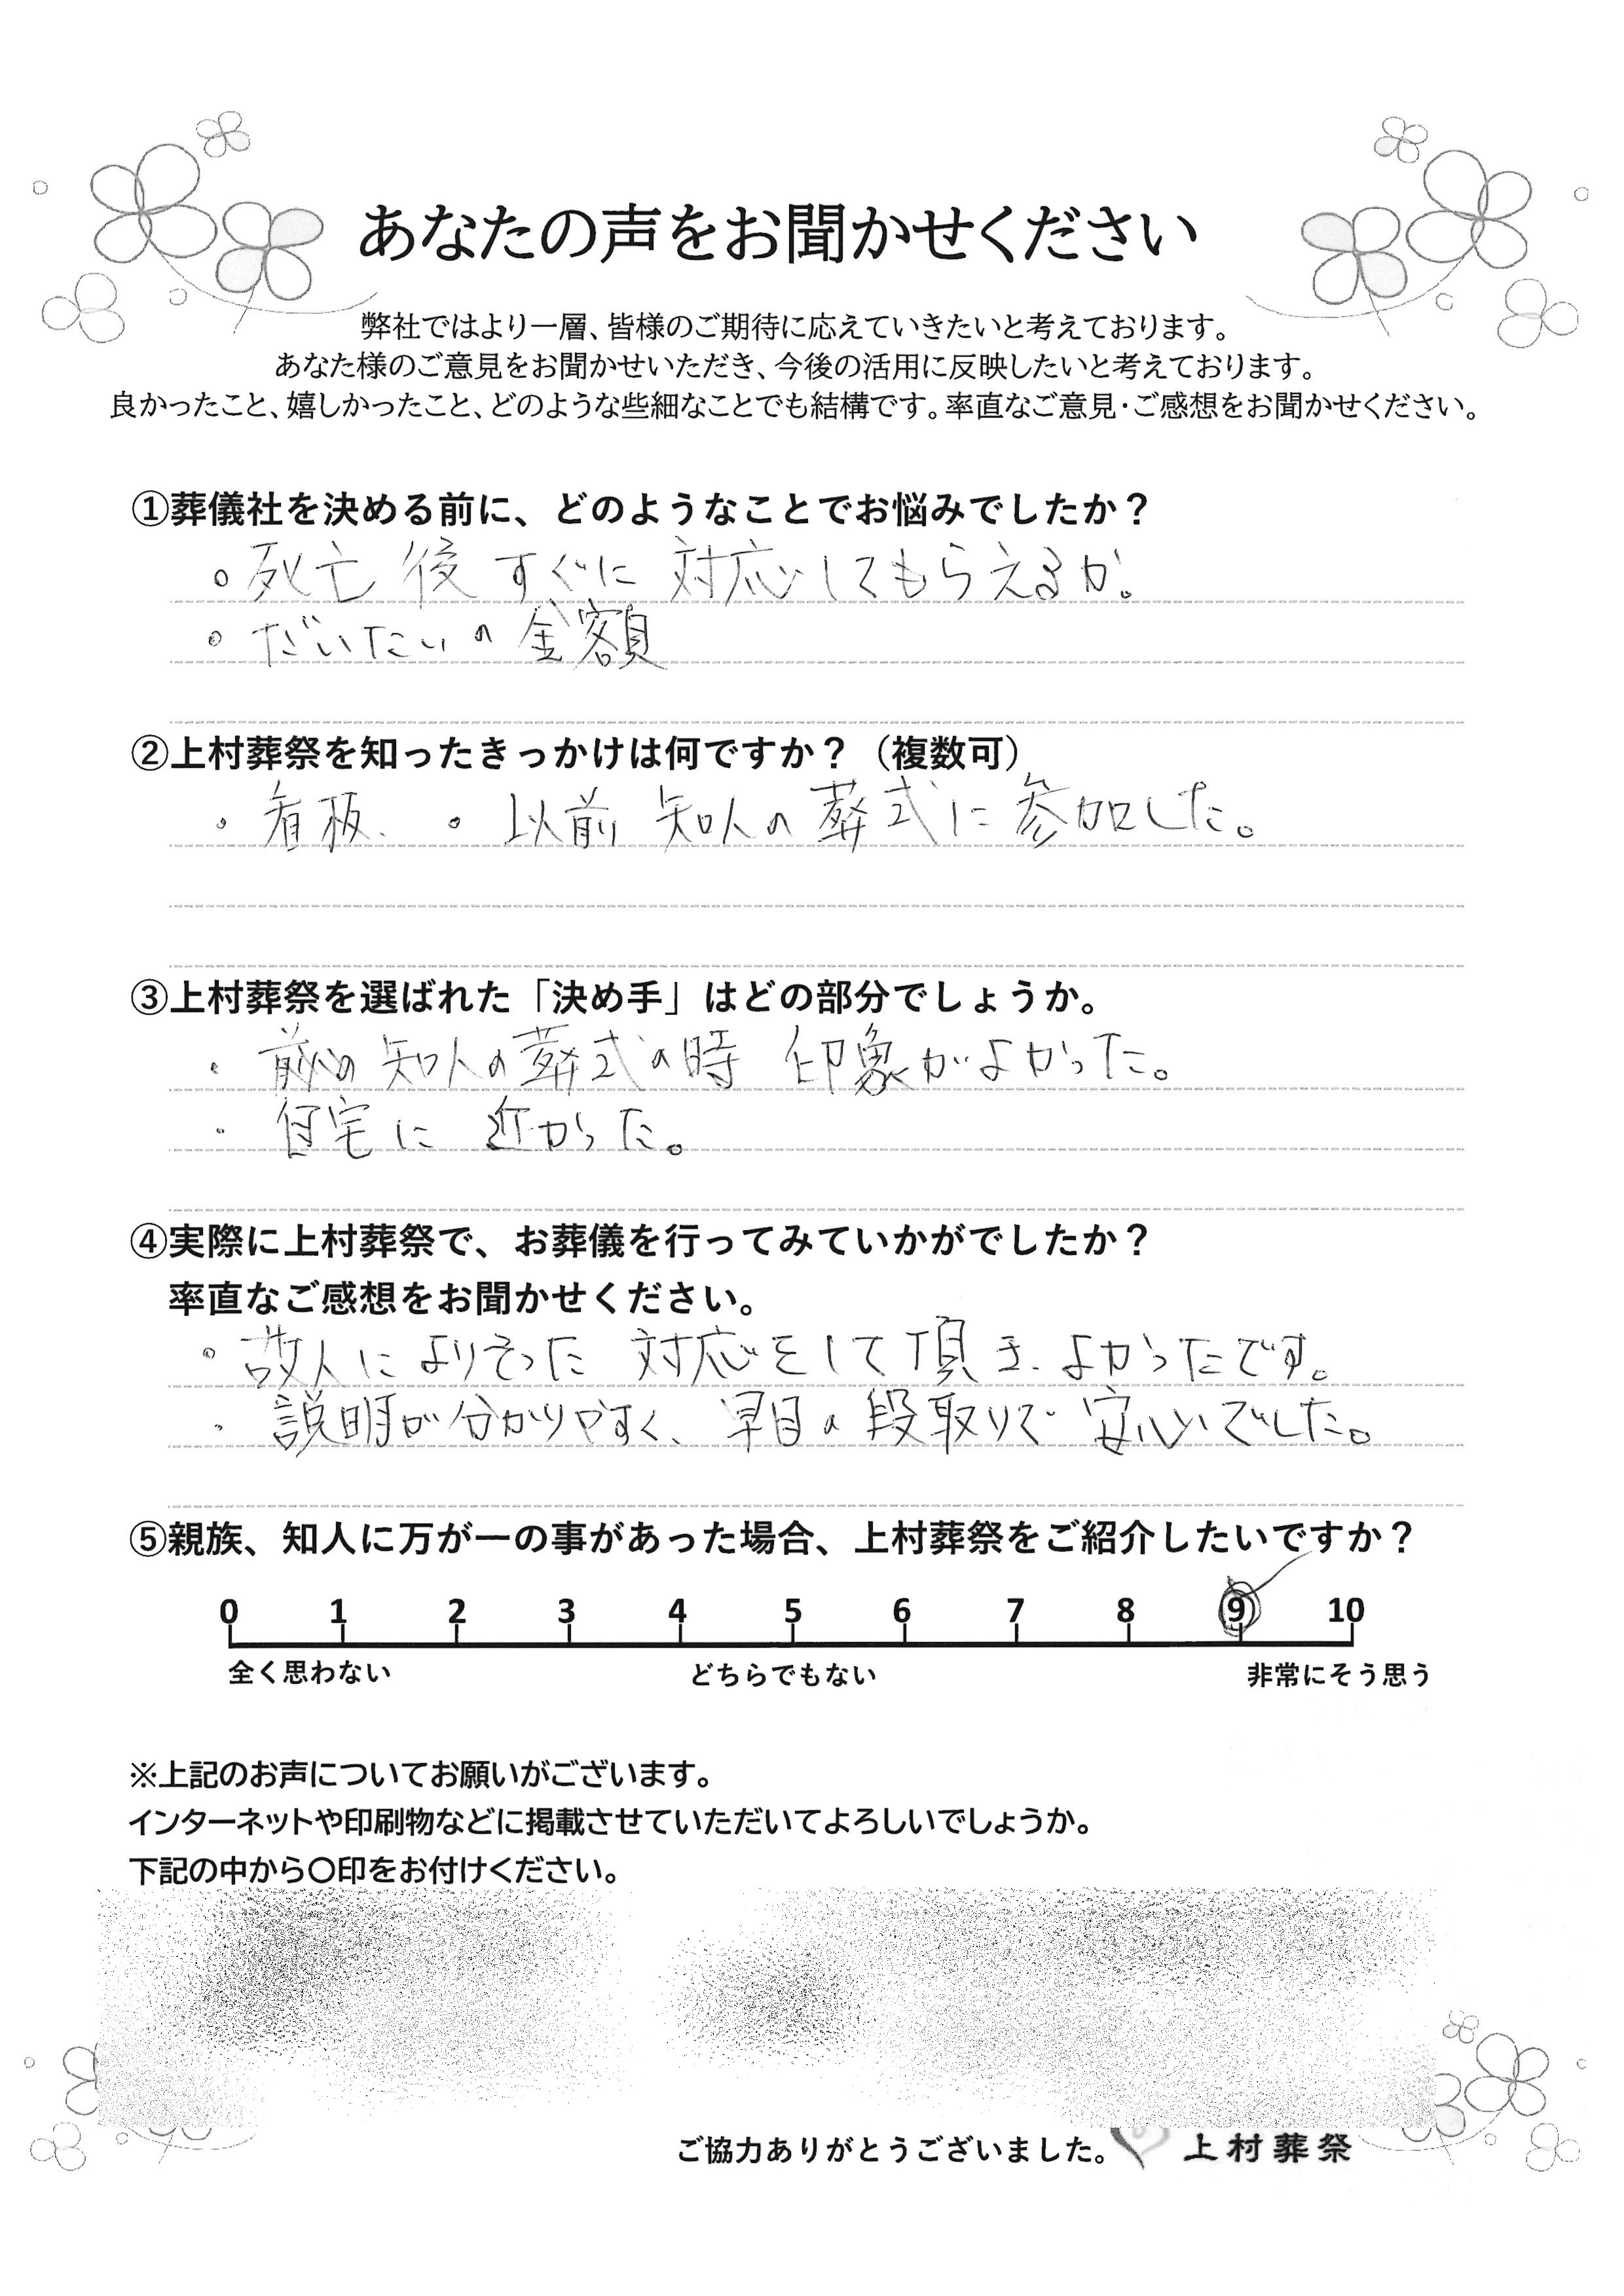 あなたの声をお聞かせください
弊社ではより一層、皆様のご期待に応えていきたいと考えております。
あなた様のご意見をお聞かせいただき、今後の活用に反映したいと考えております。
良かったこと、嬉しかったこと、どのような些細なことでも結構です。率直なご意見・ご感想をお聞かせください。
①葬儀社を決める前に、どのようなことでお悩みでしたか？
。死亡後すぐに対応してもらえるか。
。だいたいの金額
②上村葬祭を知ったきっかけは何ですか？（複数可）
・看板、・以前知人の葬式に参加した。
③上村葬祭を選ばれた「決め手」はどの部分でしょうか。
・前の知人の葬式の時印象がよかった。
・自宅に近かった。
④実際に上村葬祭で、お葬儀を行ってみていかがでしたか？
率直なご感想をお聞かせください。
・故人によりそった対応をして頂き、よかったです。
・説明が分かりやすく、早目の段取りで安心でした。
⑤親族、知人に万が一の事があった場合、上村葬祭をご紹介したいですか？
0 1 2 3 4 5 6 7 8 9 10
全く思わない どちらでもない 非常にそう思う
※上記のお声についてお願いがございます。
インターネットや印刷物などに掲載させていただいてよろしいでしょうか。
下記の中から〇印をお付けください。
ご協力ありがとうございました。 上村葬祭